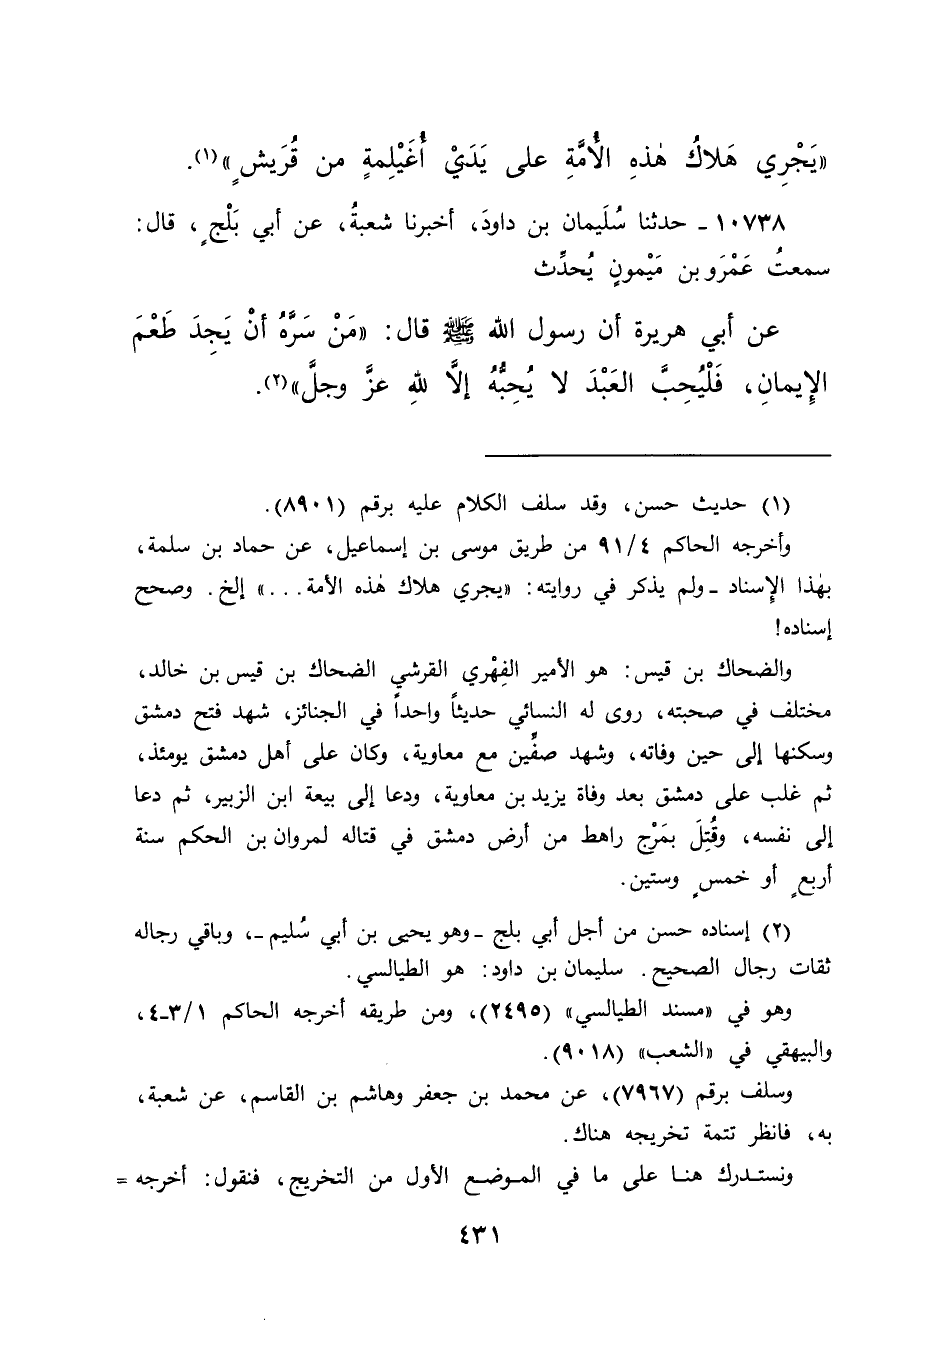 «يَجْرِي هَلاكُ هٰذِهِ الأُمَّةِ على يَدَيْ أُغَيْلِمةٍ من قُرَيشٍ»(١).
١٠٧٣٨ ـ حدثنا سُلَيمان بن داودَ، أخبرنا شعبةُ، عن أبي بَلْجٍ، قال:
سمعتُ عَمْرَو بن مَيْمونٍ يُحدِّث
عن أبي هريرة أن رسول الله ﷺ قال: «مَنْ سَرَّهُ أنْ يَجِدَ طَعْمَ
الإِيمانِ، فَلْيُحِبَّ العَبْدَ لا يُحِبُّهُ إلَّا للهِ عزَّ وجلَّ»(٢).
(١) حديث حسن، وقد سلف الكلام عليه برقم (٨٩٠١).
وأخرجه الحاكم ٩١/٤ من طريق موسى بن إسماعيل، عن حماد بن سلمة،
بهٰذا الإِسناد ـ ولم يذكر في روايته: «يجري هلاك هٰذه الأمة...» إلخ. وصحح
إسناده!
والضحاك بن قيس: هو الأمير الفِهْري القرشي الضحاك بن قيس بن خالد،
مختلف في صحبته، روى له النسائي حديثاً واحداً في الجنائز، شهد فتح دمشق
وسكنها إلى حين وفاته، وشهد صفِّين مع معاوية، وكان على أهل دمشق يومئذ،
ثم غلب على دمشق بعد وفاة يزيد بن معاوية، ودعا إلى بيعة ابن الزبير، ثم دعا
إلى نفسه، وقُتِلَ بمَرْج راهط من أرض دمشق في قتاله لمروان بن الحكم سنة
أربعٍ أو خمسٍ وستين.
(٢) إسناده حسن من أجل أبي بلج ـ وهو يحيى بن أبي سُليم ـ، وباقي رجاله
ثقات رجال الصحيح. سليمان بن داود: هو الطيالسي.
وهو في «مسند الطيالسي» (٢٤٩٥)، ومن طريقه أخرجه الحاكم ٣/١ـ٤،
والبيهقي في «الشعب» (٩٠١٨).
وسلف برقم (٧٩٦٧)، عن محمد بن جعفر وهاشم بن القاسم، عن شعبة،
به، فانظر تتمة تخريجه هناك.
ونستدرك هنا على ما في الموضع الأول من التخريج، فنقول: أخرجه =
٤٣١